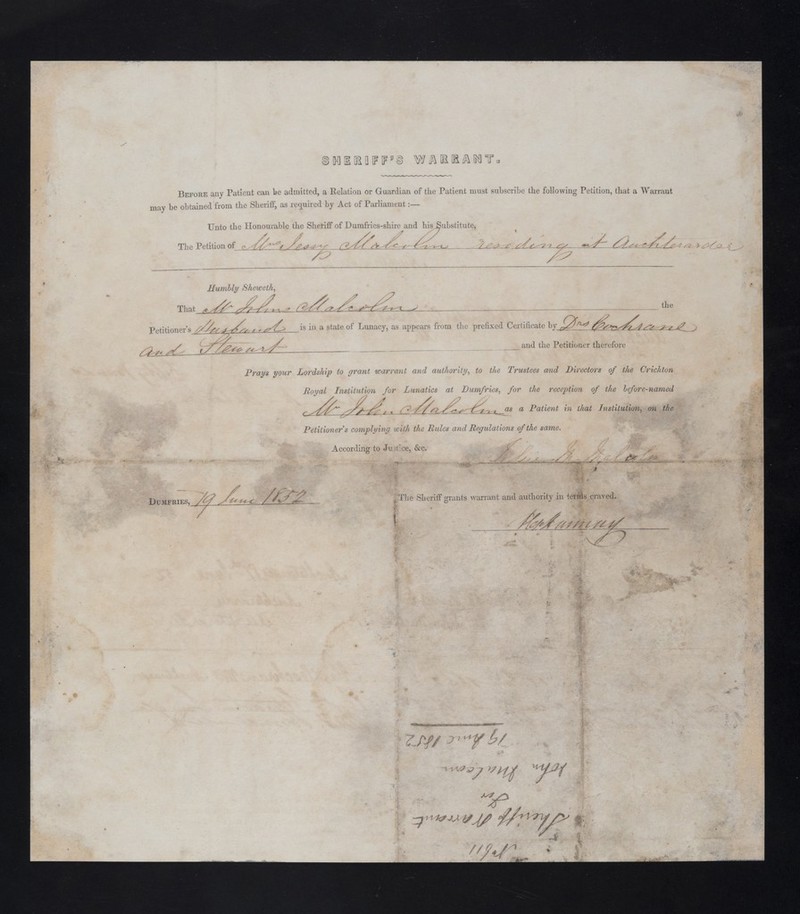 SHERIFF'S WARRANT.
BEFORE any Patient can be admitted, a Relation or Guardian of the Patient must subscribe the following Petition, that a Warrant
may be obtained from the Sheriff, as required by Act of Parliament:—
Unto the Honourable the Sheriff of Dumfries-shire and his Substitute,
The Petition of Mrs Jessy Malcolm residing at Auchterarder
Humbly Sheweth,
That Mr John Malcolm the
Petitioner's Husband is in a state of Lunacy, as appears from the prefixed Certificate by Drs Cochrane
and Stewart and the Petitioner therefore
Prays your Lordship to grant warrant and authority, to the Trustees and Directors of the Crichton
Royal Institution for Lunatics at Dumfries, for the reception of the before-named
Mr John Malcolm as a Patient in that Institution, on the
Petitioner's complying with the Rules and Regulations of the same.
According to Justice, &c.
DUMFRIES, 19 June 1852
The Sheriff grants warrant and authority in terms craved.
No 611
Sheriff Warrant
For
John Malcom
19 June 1852